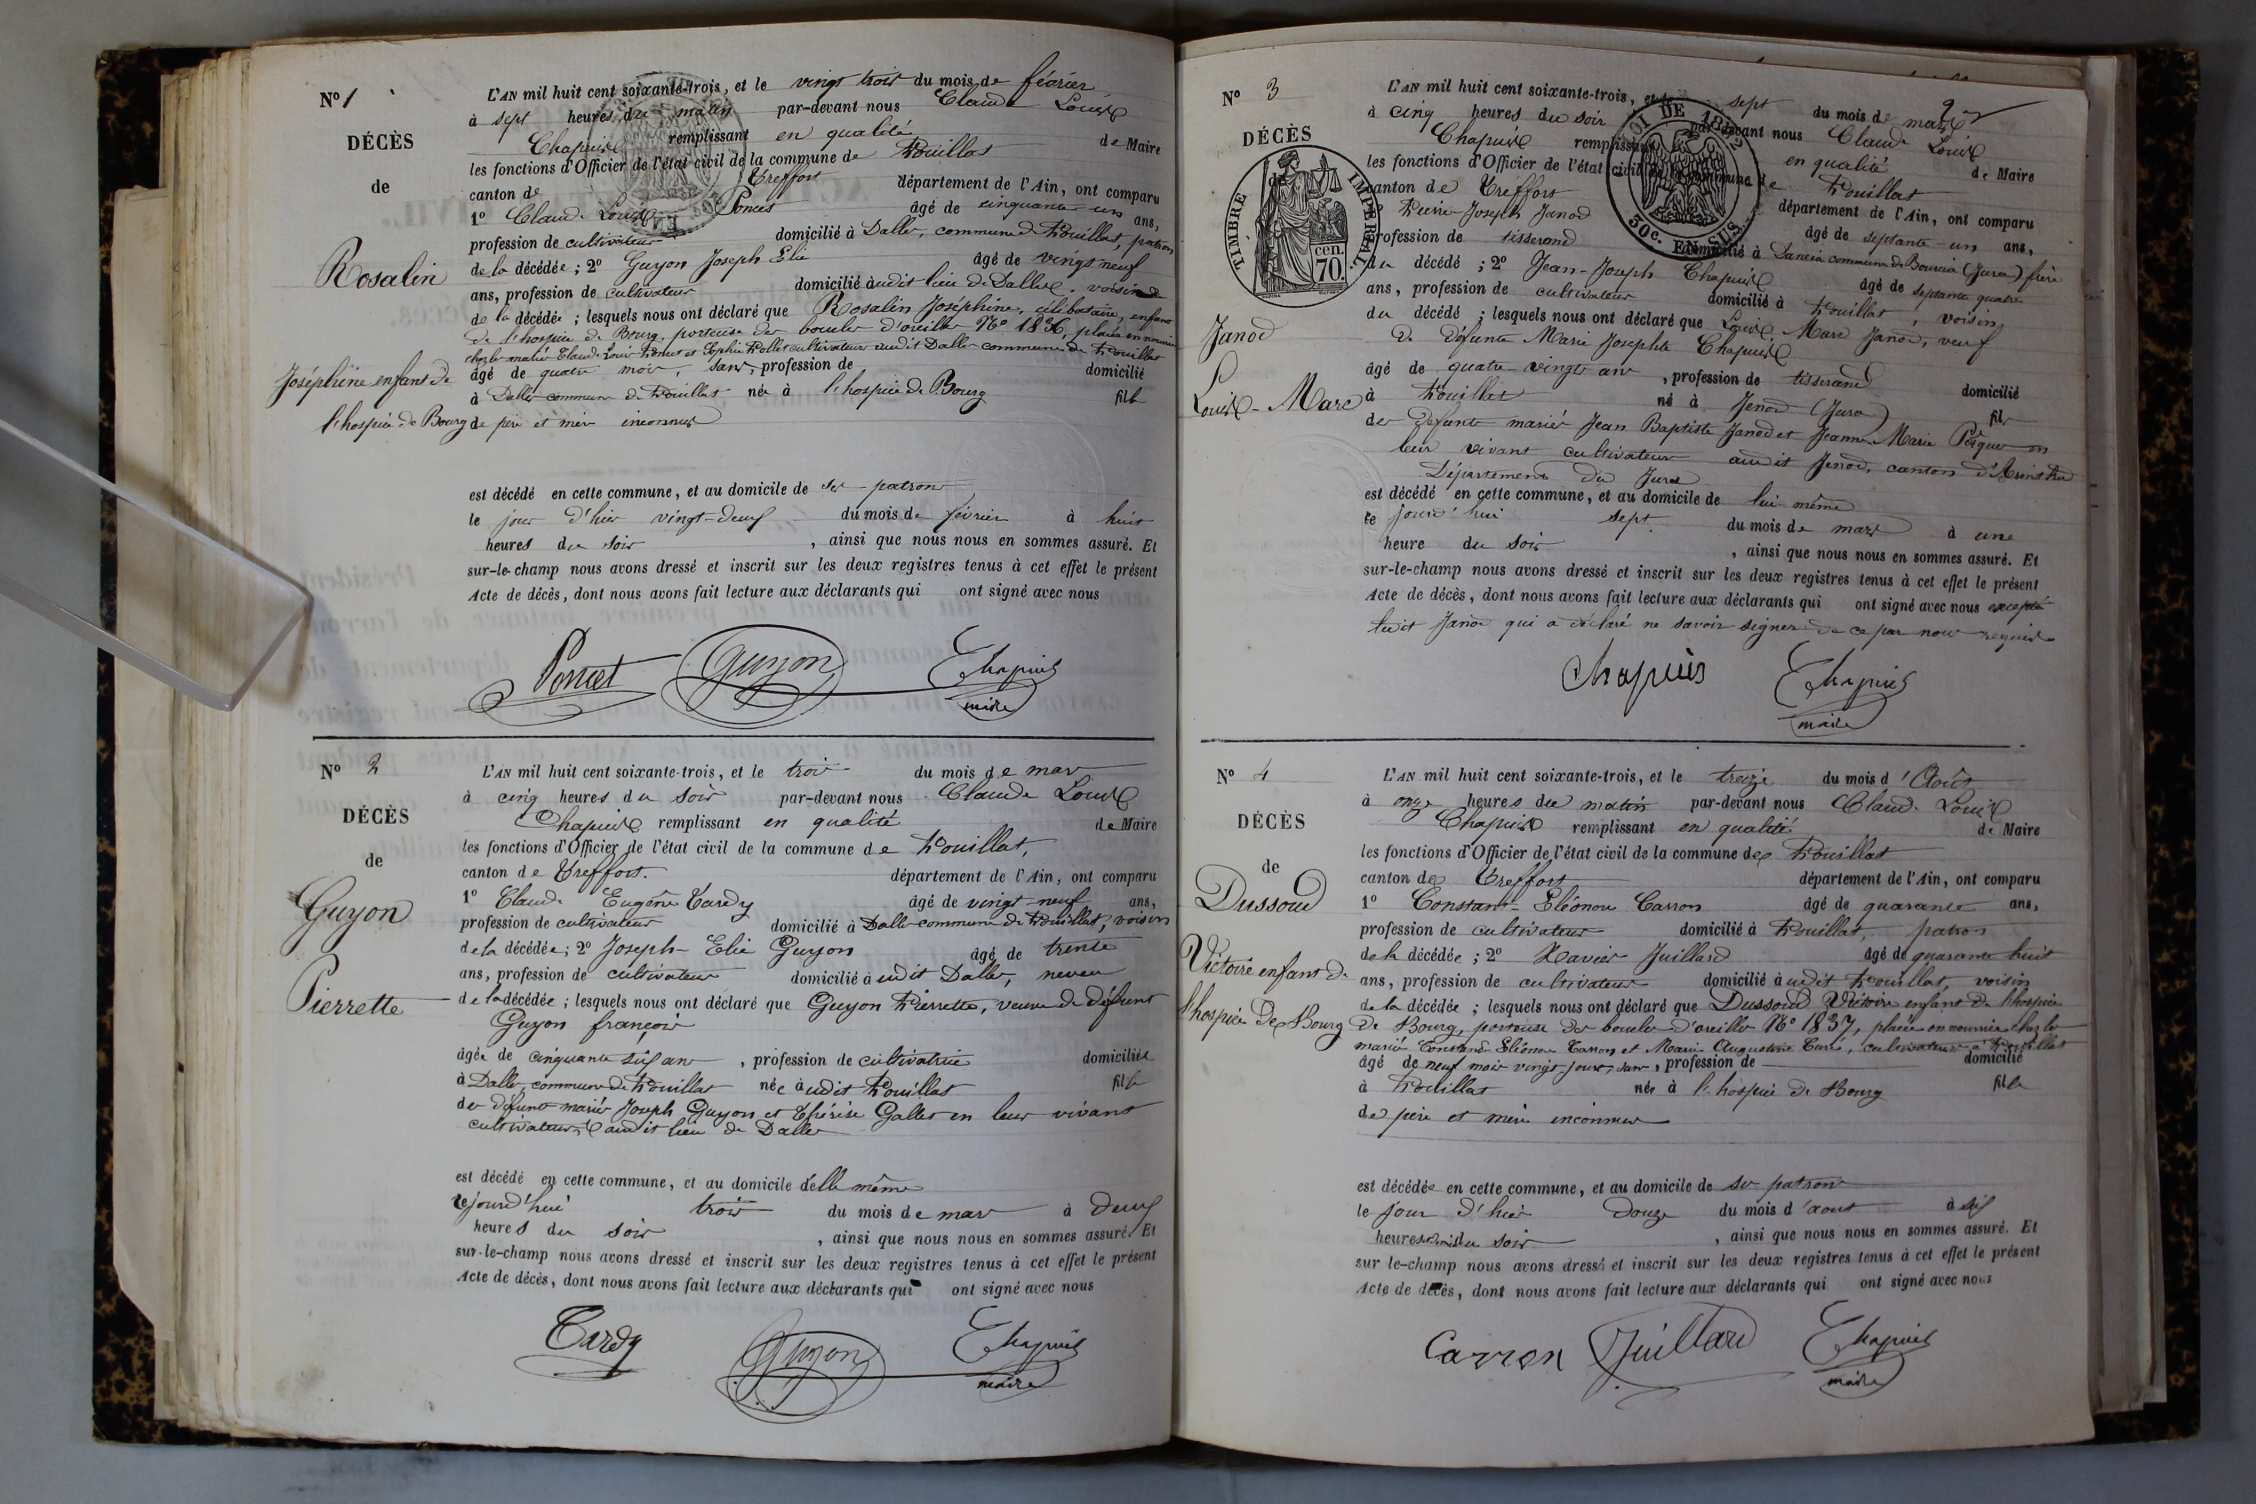 N° 1
DÉCÈS
de
Rosalin
Joséphine enfant de
l'hospice de Bourg
L'AN mil huit cent soixante-trois, et le vingt trois du mois de février
à sept heures du matin par-devant nous Claude Louis
Chapuis remplissant en qualité de Maire
les fonctions d'Officier de l'état civil de la commune de Pouillat
canton de Treffort département de l'Ain, ont comparu
1° Claude Louis Poncet âgé de cinquante un ans,
profession de cultivateur domicilié à Dalles, commune de Pouillat, patron
de la décédée ; 2° Guyon Joseph Elie âgé de vingt neuf
ans, profession de cultivateur domicilié audit lieu de Dalles, voisin de
de la décédée ; lesquels nous ont déclaré que Rosalin Joséphine, célibataire, enfant
de l'hospice de Bourg, porteuse des boucles d'oreilles N° 1836, placée en nourrice
chez les mariés Claude Louis Poncet et Sophie Pollet cultivateurs audit Dalles commune de Pouillat
âgé de quatre mois, sans, profession de domicilié
à Dalles commune de Pouillat née à l'hospice de Bourg fille
de père et mère inconnus
est décédé en cette commune, et au domicile de ses patrons
le jour d'hier vingt-deux du mois de février à huit
heures du soir, ainsi que nous nous en sommes assuré. Et
sur-le-champ nous avons dressé et inscrit sur les deux registres tenus à cet effet le présent
Acte de décès, dont nous avons fait lecture aux déclarants qui ont signé avec nous
Poncet Guyon Chapuis
maire
N° 2
DÉCÈS
de
Guyon
Pierrette
L'AN mil huit cent soixante-trois, et le trois du mois de mars
à cinq heures du soir par-devant nous Claude Louis
Chapuis remplissant en qualité de Maire
les fonctions d'Officier de l'état civil de la commune de Pouillat,
canton de Treffort. département de l'Ain, ont comparu
1° Claude Eugène Tardy âgé de vingt-neuf ans,
profession de cultivateur domicilié à Dalles commune de Pouillat, voisin
de la décédée ; 2° Joseph Elie Guyon âgé de trente
ans, profession de cultivateur domicilié audit Dalles, neveu
de la décédée ; lesquels nous ont déclaré que Guyon Pierrette, veuve de défunt
Guyon françois
âgée de cinquante six ans, profession de cultivatrice domiciliée
à Dalles, commune de Pouillat née audit Pouillat fille
des défunts mariés Joseph Guyon et Thérèse Gallet en leur vivant
cultivateurs audit lieu de Dalles
est décédé en cette commune, et au domicile d'elle même
cejourd'hui trois du mois de mars à deux
heures du soir, ainsi que nous nous en sommes assuré. Et
sur-le-champ nous avons dressé et inscrit sur les deux registres tenus à cet effet le présent
Acte de décès, dont nous avons fait lecture aux déclarants qui ont signé avec nous
Tardy Guyon Chapuis
maire
N° 3
DÉCÈS
de
TIMBRE IMPÉRIAL.
70 cen.
LOI DE 1862
30c. EN SUS
Janod
Louis-Marc
L'AN mil huit cent soixante-trois, et le sept du mois de mars
à cinq heures du soir par-devant nous Claude Louis
Chapuis remplissant en qualité de Maire
les fonctions d'Officier de l'état civil de la commune de Pouillat
canton de Treffort département de l'Ain, ont comparu
Pierre Joseph Janod âgé de septante-un ans,
profession de tisserand domicilié à commune de (Jura) frère
du décédé ; 2° Jean-Joseph Chapuis âgé de septante quatre
ans, profession de cultivateur domicilié à Pouillat, voisin
du décédé ; lesquels nous ont déclaré que Louis Marc Janod, veuf
de défunte Marie Josephte Chapuis
âgé de quatre-vingts ans, profession de tisserand domicilié
à Pouillat né à Jenod (Jura) fils
des défunts mariés Jean Baptiste Janod et Jeanne Marie en
leur vivant cultivateurs audit Jenod, canton d'Arinthod
Département du Jura
est décédé en cette commune, et au domicile de lui même
ce jourd'hui sept du mois de mars à une
heure du soir, ainsi que nous nous en sommes assuré. Et
sur-le-champ nous avons dressé et inscrit sur les deux registres tenus à cet effet le présent
Acte de décès, dont nous avons fait lecture aux déclarants qui ont signé avec nous excepté
ledit Janod qui a déclaré ne savoir signer de ce par nous requis
Chapuis Chapuis
maire
N° 4
DÉCÈS
de
Dussoud
Victoire enfant de
l'hospice de Bourg
L'AN mil huit cent soixante-trois, et le treize du mois d'Août
à onze heures du matin par-devant nous Claude Louis
Chapuis remplissant en qualité de Maire
les fonctions d'Officier de l'état civil de la commune de Pouillat
canton de Treffort département de l'Ain, ont comparu
1° Constant Eléonor Carron âgé de quarante ans,
profession de cultivateur domicilié à Pouillat, patron
de la décédée ; 2° Xavier Juillard âgé de quarante huit
ans, profession de cultivateur domicilié audit Pouillat, voisin
de la décédée ; lesquels nous ont déclaré que Dussoud Victoire enfant de l'hospice
de Bourg, porteuse des boucles d'oreilles N° 1837, placée en nourrice chez les
mariés Constant Eléonor Carron et Marie Augustine, cultivateurs à Pouillat
âgé de neuf mois vingt jours, sans, profession de domicilié
à Pouillat née à l'hospice de Bourg fille
de père et mère inconnus
est décédée en cette commune, et au domicile de ses patrons
le jour d'hier douze du mois d'aout à six
heures du soir, ainsi que nous nous en sommes assuré. Et
sur le-champ nous avons dressé et inscrit sur les deux registres tenus à cet effet le présent
Acte de décès, dont nous avons fait lecture aux déclarants qui ont signé avec nous
Carron Juillard Chapuis
maire